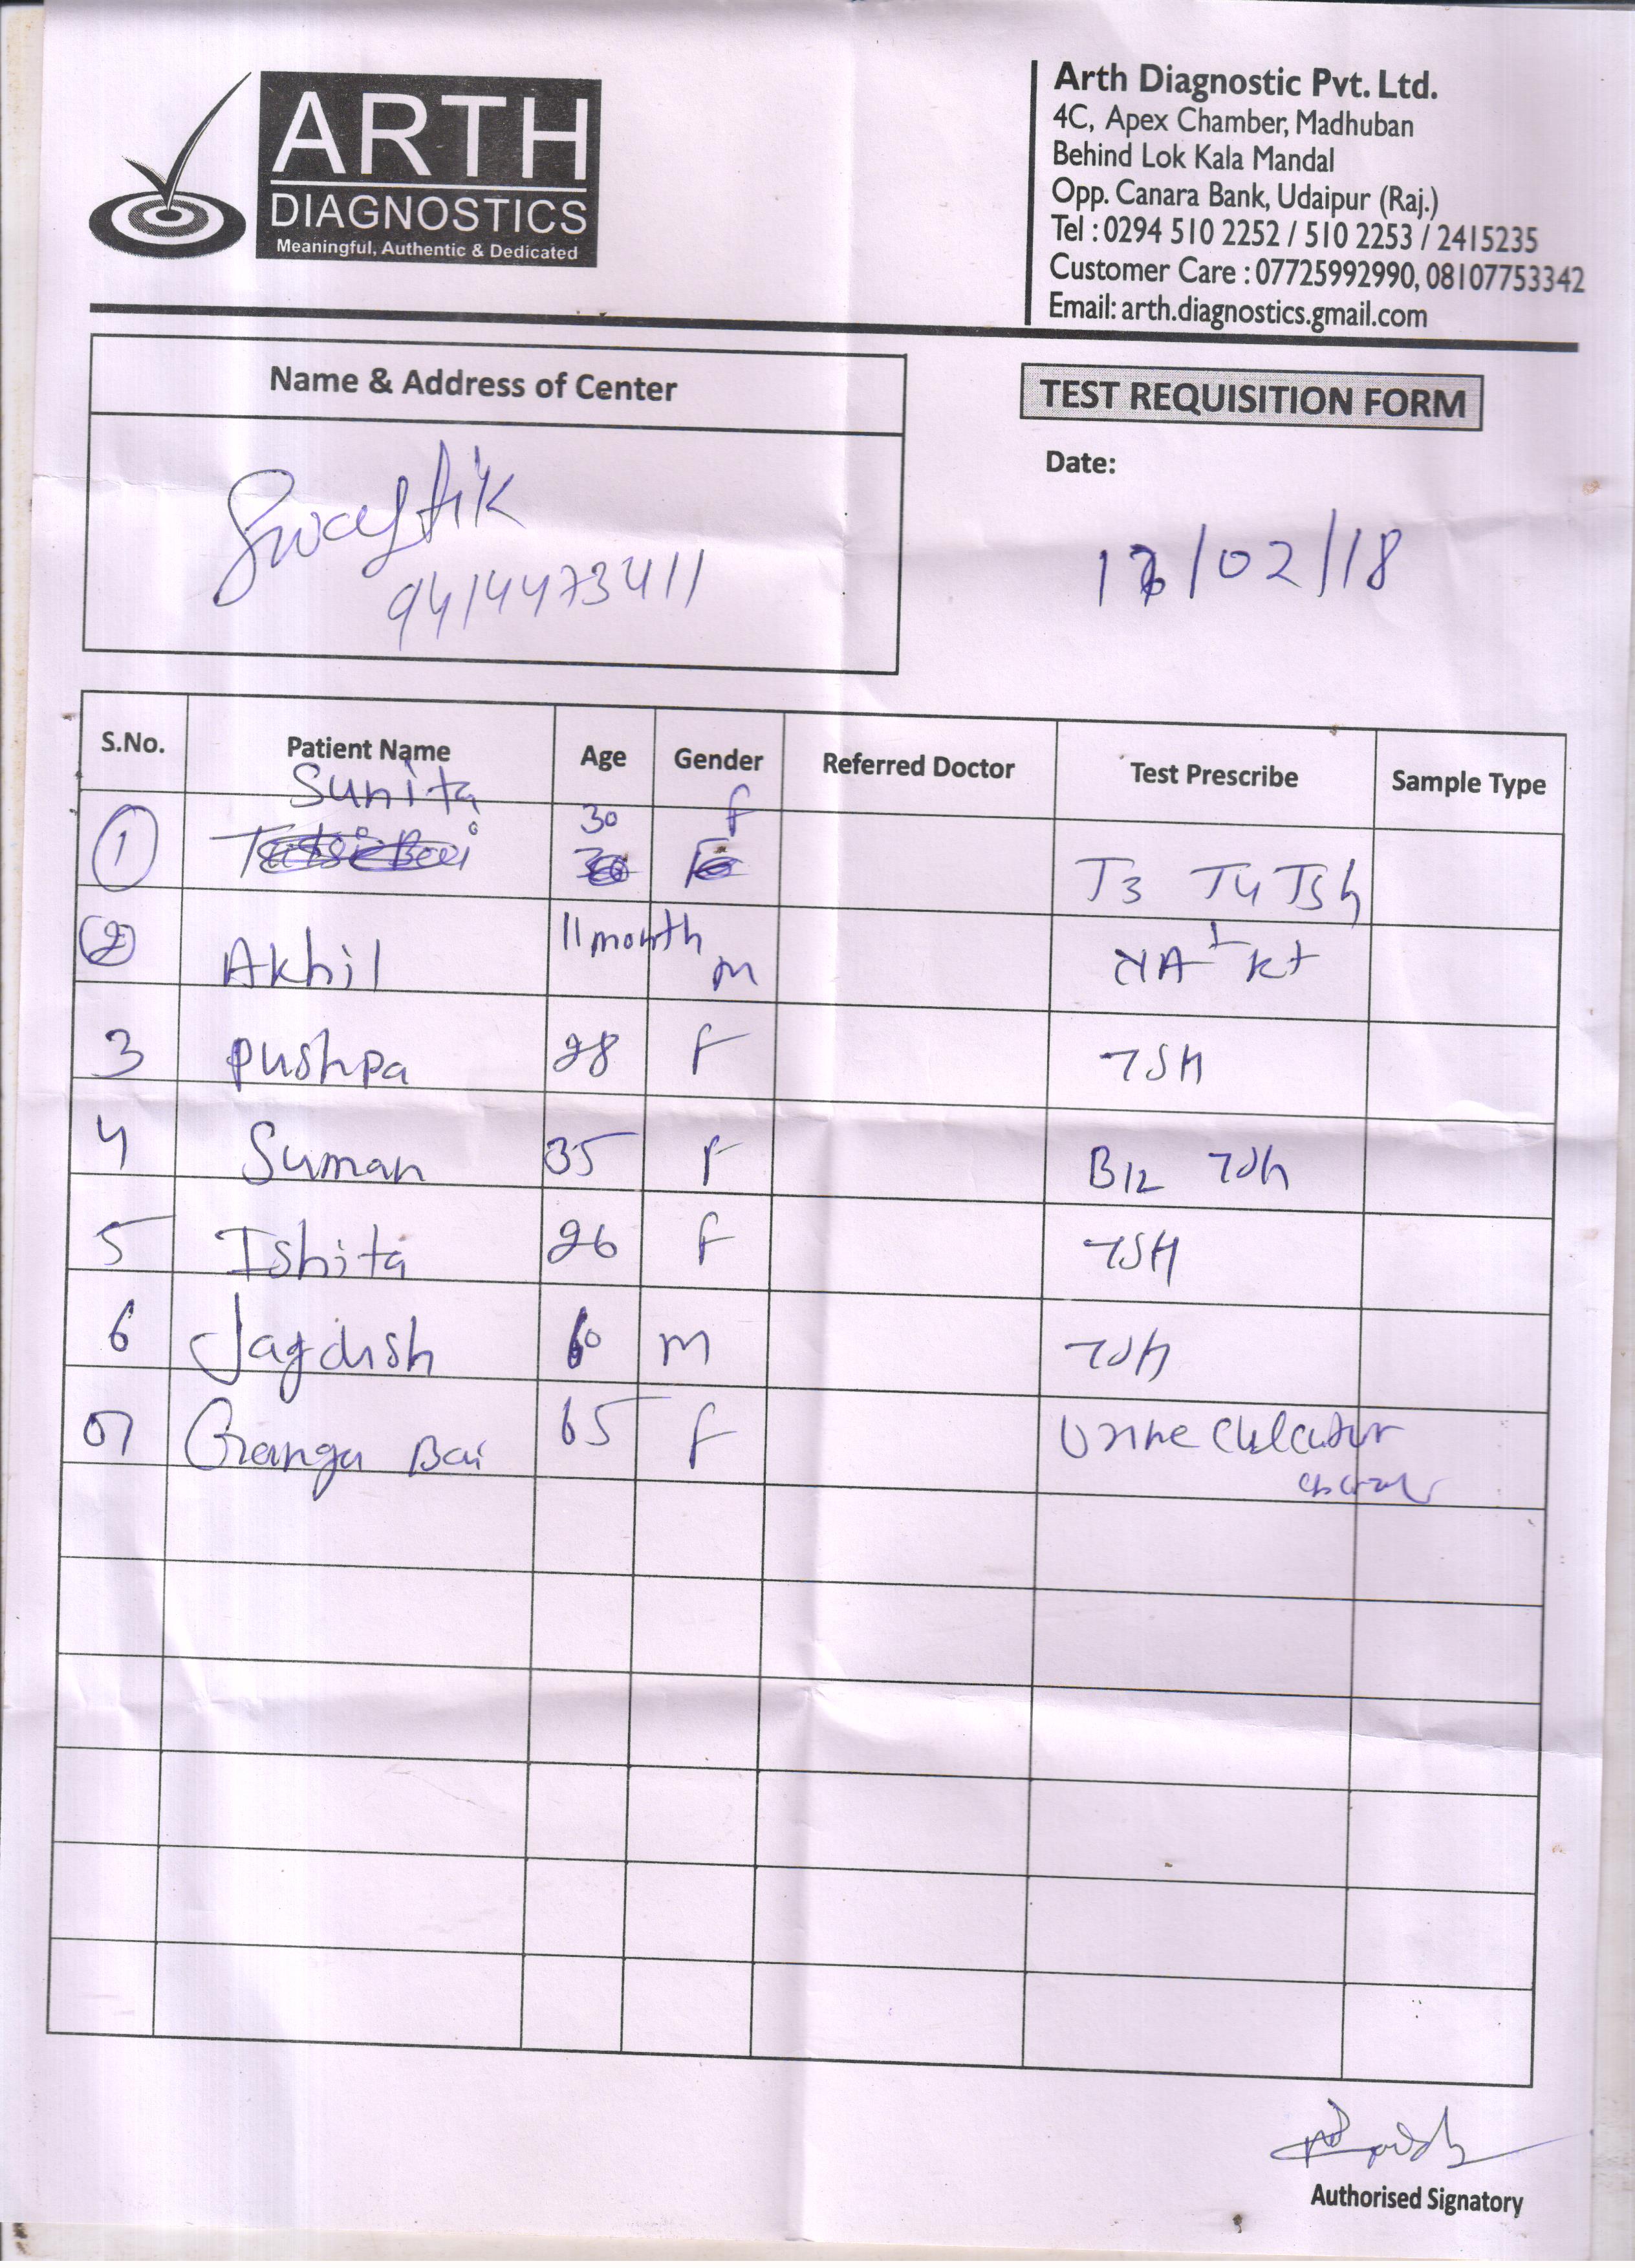 ARTH
DIAGNOSTICS
Meaningful, Authentic & Dedicated
Arth Diagnostic Pvt. Ltd.
4C, Apex Chamber, Madhuban
Behind Lok Kala Mandal
Opp. Canara Bank, Udaipur (Raj.)
Tel : 0294 510 2252 / 510 2253 / 2415235
Customer Care : 07725992990, 08107753342
Email: arth.diagnostics.gmail.com
Name & Address of Center
TEST REQUISITION FORM
Swastik
9414473411
Date:
/02/18
S.No. Patient Name Age Gender Referred Doctor Test Prescribe Sample Type
1 Sunita 30 F T3 T4 Tsh
2 Akhil 11 month m
3 pushpa 28 F TSH
4 Suman 35 F B12 Tsh
5 Ishita 26 F TSH
6 Jagdish 60 m TSH
07 Ganga Bai 65 F Urine
Authorised Signatory